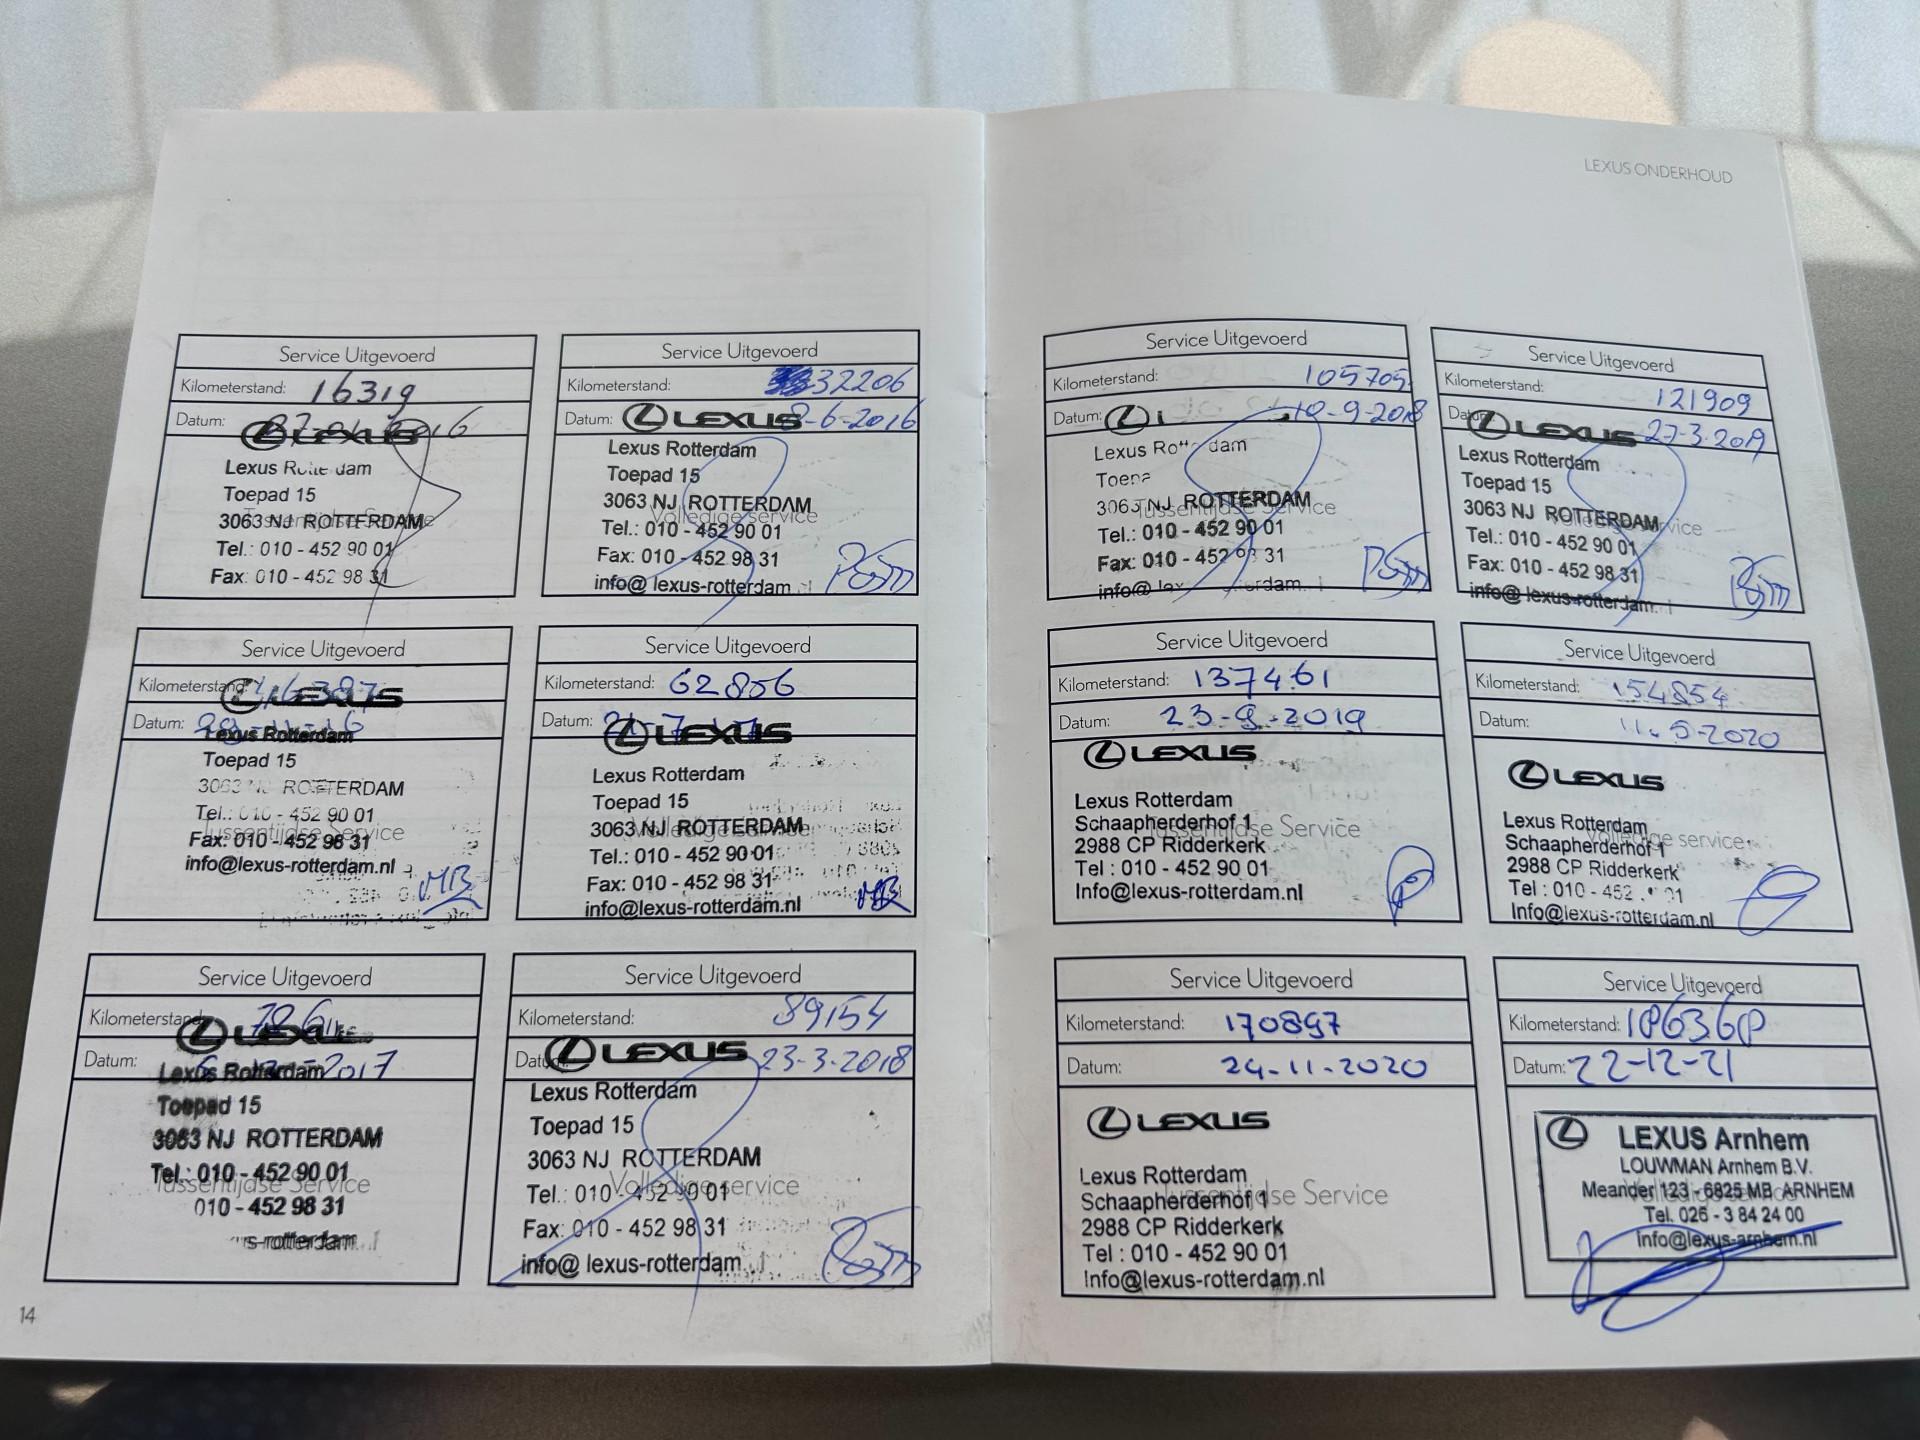 Service Uitgevoerd
Kilometerstand: 16319
Datum: 2016
LEXUS
Lexus dam
Toepad 15
3063 NJ ROTTERDAM
Tussentijdse Service
Tel.: 010 - 452 90 01
Fax: 010 - 452 98 31
Service Uitgevoerd
Kilometerstand: 32206
Datum: 8-6-2016
LEXUS
Lexus Rotterdam
Toepad 15
3063 NJ ROTTERDAM
Volledige service
Tel.: 010 - 452 90 01
Fax: 010 - 452 98 31
info@lexus-rotterdam
Service Uitgevoerd
Kilometerstand:
Datum:
LEXUS
Lexus Rotterdam
Toepad 15
3063 NJ ROTTERDAM
Tel.: 010 - 452 90 01
Tussentijdse Service
Fax: 010 - 452 98 31
info@lexus-rotterdam.nl
MB
Service Uitgevoerd
Kilometerstand: 62856
Datum: 21-7-17
LEXUS
Lexus Rotterdam
Toepad 15
3063 NJ ROTTERDAM
Volledige service
Tel.: 010 - 452 90 01
Fax: 010 - 452 98 31
info@lexus-rotterdam.nl
MB
Service Uitgevoerd
Kilometerstand:
Datum: 2017
LEXUS
Lexus Rotterdam
Toepad 15
3063 NJ ROTTERDAM
Tel.: 010 - 452 90 01
Tussentijdse Service
010 - 452 98 31
s-rotterdam
Service Uitgevoerd
Kilometerstand: 89154
Datum: 23-3-2018
LEXUS
Lexus Rotterdam
Toepad 15
3063 NJ ROTTERDAM
Volledige service
Tel.: 010 - 452 90 01
Fax: 010 - 452 98 31
info@lexus-rotterdam
14
LEXUS ONDERHOUD
Service Uitgevoerd
Kilometerstand: 105705
Datum: 10-9-2018
Lexus dam
3063 NJ ROTTERDAM
Tussentijdse Service
Tel.: 010 - 452 90 01
Fax: 010 - 452 98 31
Service Uitgevoerd
Kilometerstand: 121909
Datum: 27-3-2019
LEXUS
Lexus Rotterdam
Toepad 15
3063 NJ ROTTERDAM
Volledige service
Tel.: 010 - 452 90 01
Fax: 010 - 452 98 31
info@lexus-rotterdam
Service Uitgevoerd
Kilometerstand: 137461
Datum: 23-9-2019
LEXUS
Lexus Rotterdam
Schaapherderhof 1
Tussentijdse Service
2988 CP Ridderkerk
Tel : 010 - 452 90 01
Info@lexus-rotterdam.nl
Service Uitgevoerd
Kilometerstand: 154854
Datum: 11.5-2020
LEXUS
Lexus Rotterdam
Schaapherderhof 1
Volledige service
2988 CP Ridderkerk
Tel : 010 - 452 01
Info@lexus-rotterdam.nl
Service Uitgevoerd
Kilometerstand: 170897
Datum: 24-11-2020
LEXUS
Lexus Rotterdam
Schaapherderhof 1
Tussentijdse Service
2988 CP Ridderkerk
Tel : 010 - 452 90 01
Info@lexus-rotterdam.nl
Service Uitgevoerd
Kilometerstand: 186368
Datum: 22-12-21
LEXUS Arnhem
LOUWMAN Arnhem B.V.
Meander 123 - 6825 MB ARNHEM
Tel. 026 - 3 84 24 00
info@lexus-arnhem.nl